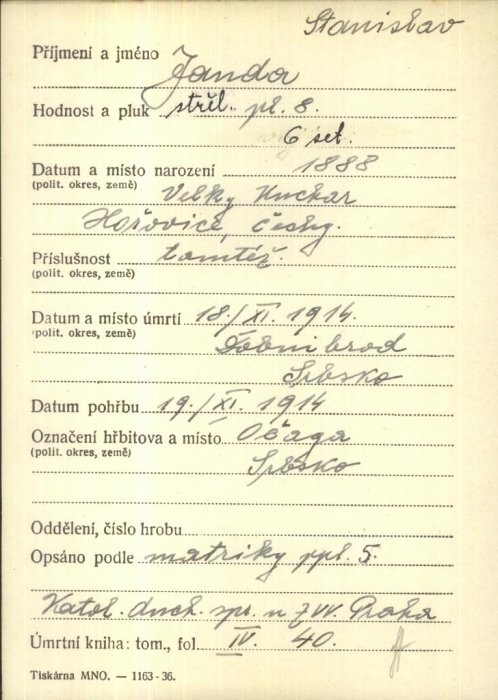 Stanislav
Příjmení a jméno Janda
Hodnost a pluk střel. pl. 8.
6 set.
Datum a místo narození 1888
(polit. okres, země) Velky Kuchar
Hořovice, Čechy.
Příslušnost tamtéž.
(polit. okres, země)
Datum a místo úmrtí 18./XI. 1914.
(polit. okres, země) Dobnibrod
Srbsko
Datum pohřbu 19./XI. 1914
Označení hřbitova a místo Očaga
(polit. okres, země) Srbsko
Oddělení, číslo hrobu
Opsáno podle matriky ppl. 5.
Katol. duch. spr. u ZVV. Praha
Úmrtní kniha: tom., fol. IV. 40.
Tiskárna MNO. — 1163-36.